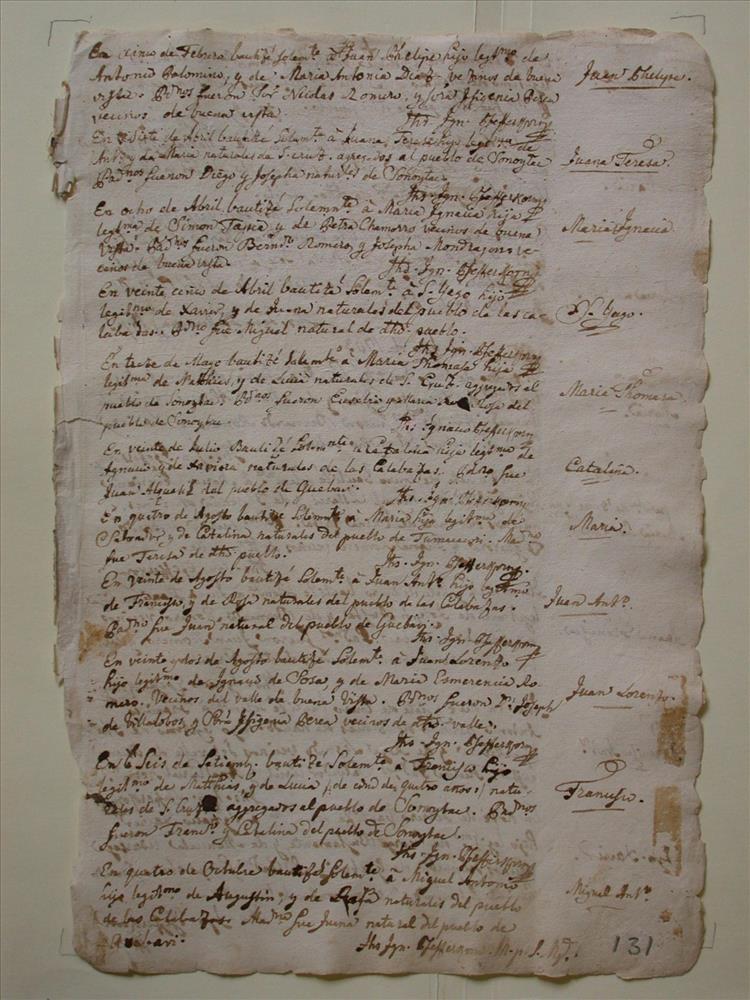 En cinco de Febrero bautizé Solemte. à Juan Phelipe hijo legitmo de
Juan Phelipe.
Antonio Palomino, y de Maria Antonia Diaz vecinos de buena
vista. Padnos fueron Nicolas Romero, y Iphigenia Perea
vecinos de buena vista.
Jhs. Ign. Pfefferkorn
En de Abril bautizé Solemte. à Juana Teresa hija legitma de
Juana Teresa.
Ant. y de Maria naturales de S. cruz. agregados al pueblo de Sonoytac
Padnos fueron Diego y Josepha naturs. de Sonoytac.
Jhs. Ign. Pfefferkorn
En ocho de Abril bautizé Solemnte. à Maria Ignacia hija
Maria Ignacia
legitma de Simon Tapia y de Petra Chamorro vecinos de buena
vista. Padnos fueron Berno. Romero, y Josepha Mondragon ve-
cinos de buena vista.
Jhs. Ign. Pfefferkorn
En veinte cinco de Abril bautizé Solemte. à S. Yago hijo
S. Yago.
legitmo de Xavier, y de Juana naturales del pueblo de las ca-
labazas. Padno fue Miguel natural de dho. pueblo.
Jhs. Ign. Pfefferkorn
En trece de Mayo bautizé Solemte. à Maria Thomasa hija
Maria Thomasa.
legitma de Mathias, y de Lucia naturales de S. Cruz. aggregados al
pueblo de Sonoytac. Padnos fueron Eusebio y Maria Rosa del
pueblo de Sonoytac.
Jhs. Ignacio Pfefferkorn
En veinte de Julio Bautizé Solemnte. à Catalina hija legitma de
Catalina.
Ignacio y de Xaviera naturales de las Calabazas. Padno. fue
Juan Alguazil del pueblo de Guebavi.
Jhs. Ign. Pfefferkorn
En quatro de Agosto bautizé Solemte. à Maria hija legitma. de
Maria.
Salvador, y de Catalina naturales del pueblo de Tumacacori. Madno
fue Teresa de dho. pueblo.
Jhs. Ign. Pfefferkorn.
En veinte de Agosto bautizé Solemte. à Juan Anto. hijo legitmo
Juan Anto.
de Francisco, y de Rosa naturales del pueblo de las Calabazas.
Padno fue Juan natural del pueblo de Guebavi.
Jhs. Ign. Pfefferkorn
En veinte y dos de Agosto bautizé Solemte. à Juan Lorenzo
Juan Lorenzo.
hijo legitmo. de Ignacio de Sosa, y de Maria Esmerencia Ro-
mero. Vecinos del valle de buena Vista. Padnos fueron Dn. Joseph
de Villalobos, y Iphigenia Perea vecinos de dho. valle.
Jhs. Ign. Pfefferkorn
En Seis de Setiemb. bautizé Solemte à Francisco hijo
Francisco.
legitmo de Mathias, y de Lucia (de edad de quatro años) natu-
rales de S. Cruz aggregados al pueblo de Sonoytac. Padnos
fueron Franco. y Catalina del pueblo de Sonoytac.
Jhs. Ign. Pfefferkorn
En quatro de Octubre bautizé Solemte. à Miguel Antonio
Miguel Anto.
hijo legitmo de Augustin, y de Rosa naturales del pueblo
de las Calabazas. Madna fue Juana natural del pueblo de
Guebavi.
Jhs Ign. Pfefferkorn M.p. S. J.
131